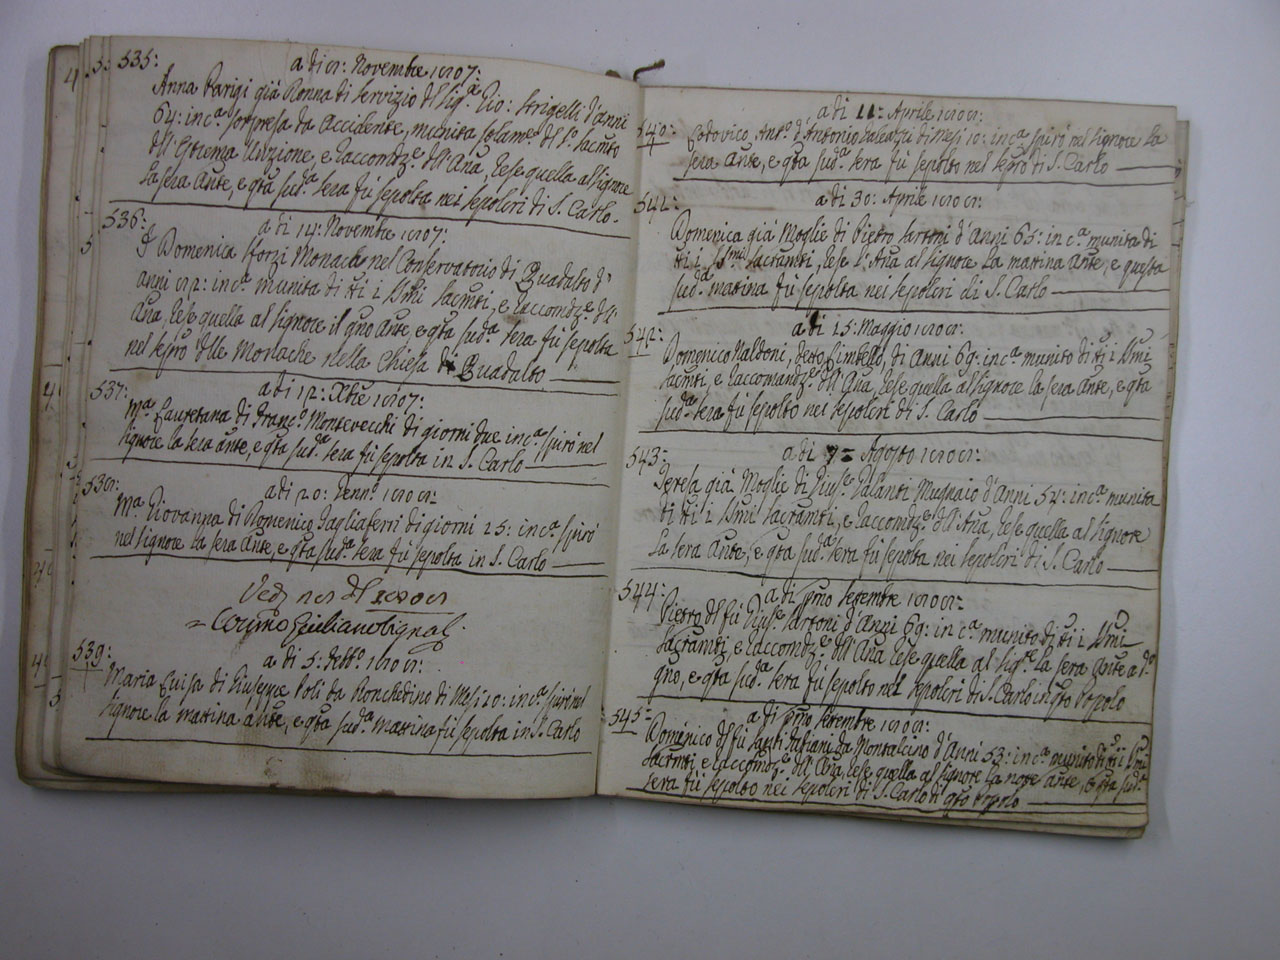 535:
a di 8: Novembre 1807:
Anna Parigi già Donna di servizio del Sig.e Gio: Strigelli d'anni
64: inc.a sorpresa da Accidente, munita solam.e del S.o Sacmto
dell'Estrema Unzione, e raccomdz.e dell'Ana, rese quella al Signore
la sera ante, e qta sud.a sera fù sepolta nei sepolcri di S. Carlo.
536:
a di 14: Novembre 1807:
Domenica Sforzi Monacha nel Conservatorio di Quadalto d'
anni 82: inc.a munita di tti i SSmi Sacmti, e raccomdz.e dell'
Ana, rese quella al Signore il gno ante, e qta sud.a sera fù sepolta
nel sepro delle Monache nella Chiesa di Quadalto
537:
a di 12: Xbre 1807:
M.a Lauretana di Franc.o Montevecchi di giorni due inc.a spirò nel
Signore la sera ante, e qta sud.a sera fù sepolta in S. Carlo
538:
a di 20: Genn.o 1808:
M.a Giovanna di Domenico Tagliaferri di giorni 25: inc.a spirò
nel Signore la sera ante, e qta sud.a sera fù sepolta in S. Carlo
539:
a di 5: Febb.o 1808:
Maria Luisa di Giuseppe Poli da Ronchidino di Mesi 20: inc.a spirò nel
Signore la mattina ante, e qta sud.a mattina fù sepolta in S. Carlo
a di 11: Aprile 1808:
540:
Lodovico, Ant.o d'Antonio Galeazzi di Mesi 10: inc.a spirò nel Signore la
sera ante, e qta sud.a sera fù sepolto nel sepro di S. Carlo
a di 30: Aprile 1808:
541:
Domenica già Moglie di Pietro Sartoni d'Anni 65: in c.a munita di
tti i SSmi Sacramti, rese l'Ana al Signore la mattina ante, e questa
sud.a mattina fù sepolta nei sepolcri di S. Carlo
a di 15: Maggio 1808:
542:
Domenico Naldoni, detto Cimbello, di Anni 69: inc.a munito di tti i SSmi
Sacmti, e raccomandz.e dell'Ana, rese quella al Signore la sera ante, e qta
sud.a sera fù sepolto nei sepolcri di S. Carlo
a di 7= Agosto 1808:
543:
Teresa già Moglie di Gius.e Galanti Mugnaio d'Anni 54: inc.a munita
di tti i SSmi Sacramti, e raccomdz.e dell'Ana, rese quella al Signore
la sera ante, e qta sud.a sera fù sepolta nei sepolcri di S. Carlo
544:
a di pmo Settembre 1808:
Pietro del fù Gius.e Sartoni d'Anni 69: in c.a munito di tti i SSmi
Sacramti, e raccomdz.e dell'Ana rese quella al Sig.e la sera ante a d.o
gno, e qta sud.a sera fù sepolto nel sepolcri di S. Carlo in qto Popolo
545:
a di pmo Settembre 1808:
Domenico del fù Santi da Montalcino d'Anni 53: inc.a munito di tti i SSmi
Sacmti, e raccomdz.e dell'Ana, rese quella al Signore la notte ante, e qta sud.a
sera fù sepolto nei sepolcri di S. Carlo di qto Popolo